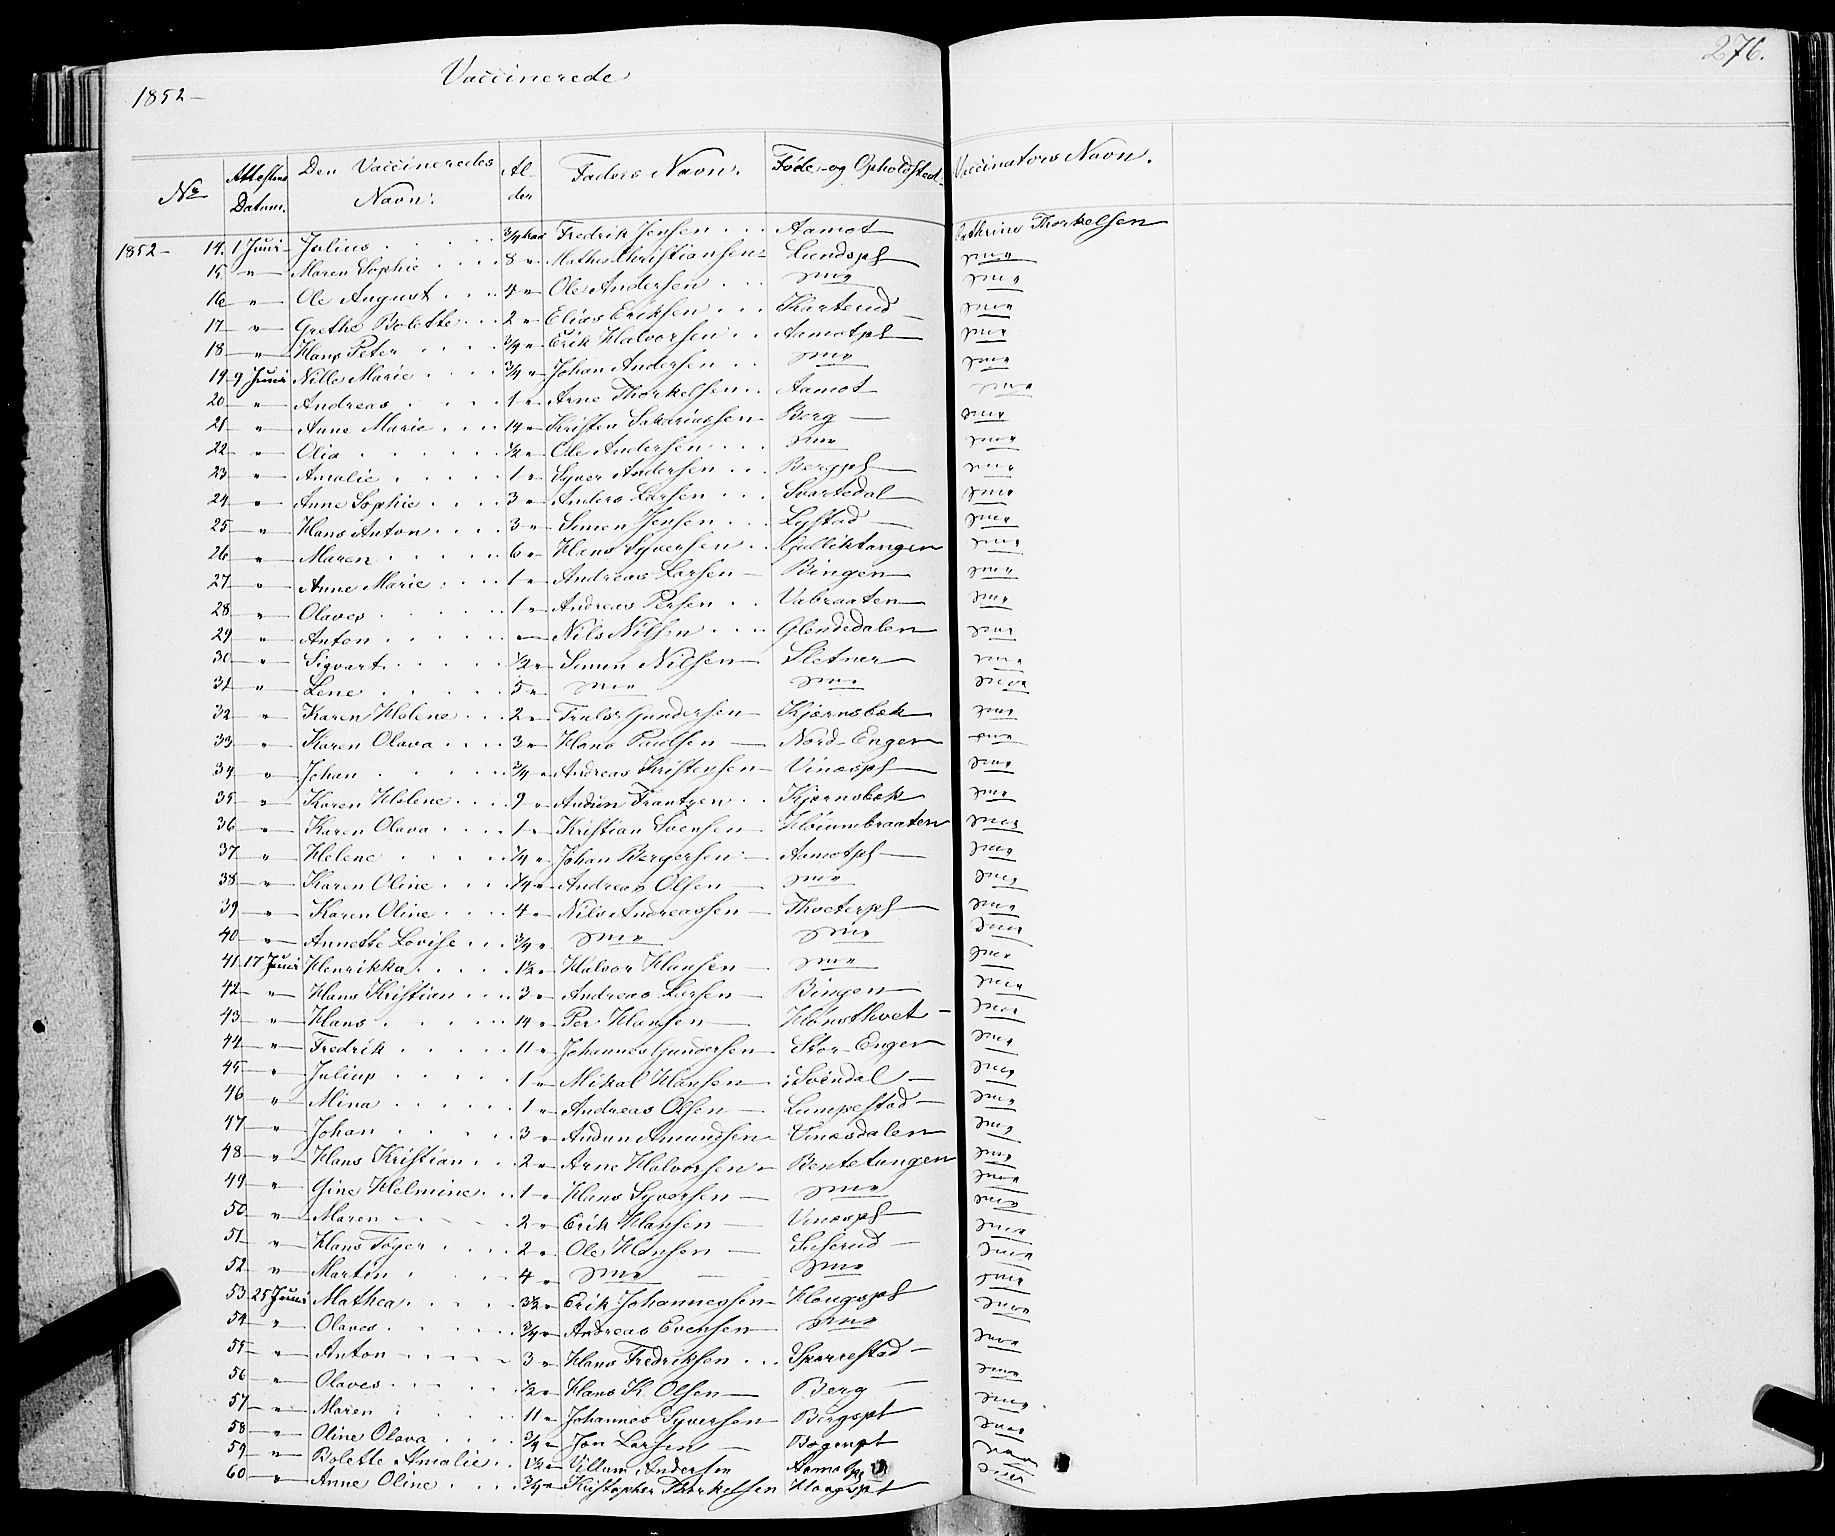 276.
1852 –
Vaccinerede
No
Attestens Datum.
Den Vaccineredes Navn:
Alder
Faders Navn:
Føde- og Opholdssted.
Vaccinators Navn.
1852 – 14. 1 Juni Julius 3/4 Aar Fredrik Jensen Aamot Cathrine Thorkelsen
15 " Maren Sophie 8 " Mathes Christiansen Lundspl dito
16 " Ole August 4 " Ole Andersen dito dito
17 " Grethe Bolette 2 " Elias Eriksen Karterud dito
18 " Hans Peter 3/4 " Erik Halvorsen Aamotpl dito
19 9 Juni Nille Marie 3/4 " Johan Andersen dito dito
20 " Andreas 1 " Arne Thorkelsen Aamot dito
21 " Anne Marie 14 " Kristen Sakariassen Berg dito
22 " Olia 1/2 " Ole Andersen dito dito
23 " Amalie 1 " Syver Andersen Bergpl dito
24 " Anne Sophie 3 " Anders Larsen Svartedal dito
25 " Hans Anton 3 " Simen Jensen Lystad dito
26 " Maren 6 " Hans Syversen Gulliktangen dito
27 " Anne Marie 1 " Andreas Larsen Bingen dito
28 " Olaves 1 " Andreas Persen Vabraaten dito
29 " Anton – Nils Nilsen Glendedalen dito
30 " Sigvart 1/2 " Simen Nilsen Sletner dito
31 " Lene 5 " dito dito dito
32 " Karen Helene 2 " Truls Gundersen Kjærnsbæk dito
33 " Karen Olava 3 " Hans Paulsen Nord-Enger dito
34 " Johan 3/4 " Andreas Kristensen Vinæspl dito
35 " Karen Helene 9 " Audun Frantzen Kjærnsbæk dito
36 " Karen Olava 1 " Kristian Svensen Høiumbraaten dito
37 " Helene 1/4 " Johan Bergersen Aamotpl dito
38 " Karen Oline 1/4 " Andreas Olsen dito dito
39 " Karen Oline 4 " Nils Andreassen Thveterpl dito
40 " Annette Lovise 3/4 " dito dito dito
41 17 Juni Henrikka 1 1/2 " Halvor Hansen dito dito
42 " Hans Kristian 3 " Andreas Larsen Bingen dito
43 " Hans 14 " Per Hansen Hønsthvet dito
44 " Fredrik 11 " Johannes Gundersen Stor-Enger dito
45 " Julius 1 " Mikal Hansen Svendal dito
46 " Mina 1 " Andreas Olsen Lumpestad dito
47 " Johan 3 " Audun Amundsen Vinæsdalen dito
48 " Hans Kristian 2 " Arne Halvorsen Bentetangen dito
49 " Gine Helmine 1 " Hans Syversen dito dito
50 " Maren 2 " Erik Hansen Vinæspl dito
51 " Hans Tøger 2 " Ole Hansen Suserud dito
52 " Martin 4 " dito dito dito
53 25 Juni Mathea 3 1/2 " Erik Johannessen Hougspl dito
54 " Olaves 3/4 " Andreas Evensen dito dito
55 " Anton 3 " Hans Fredriksen Sparrestad dito
56 " Olaves 1/2 " Hans K. Olsen Berg dito
57 " Maren 11 " Johannes Syversen Bergspt dito
58 " Oline Olava 3/4 " Jon Larsen dito
59 " Bolette Amalie 1 1/2 " Villum Andersen dito
60 " Anne Oline 3/4 " Kristopher Thorkelsen Hougspt dito